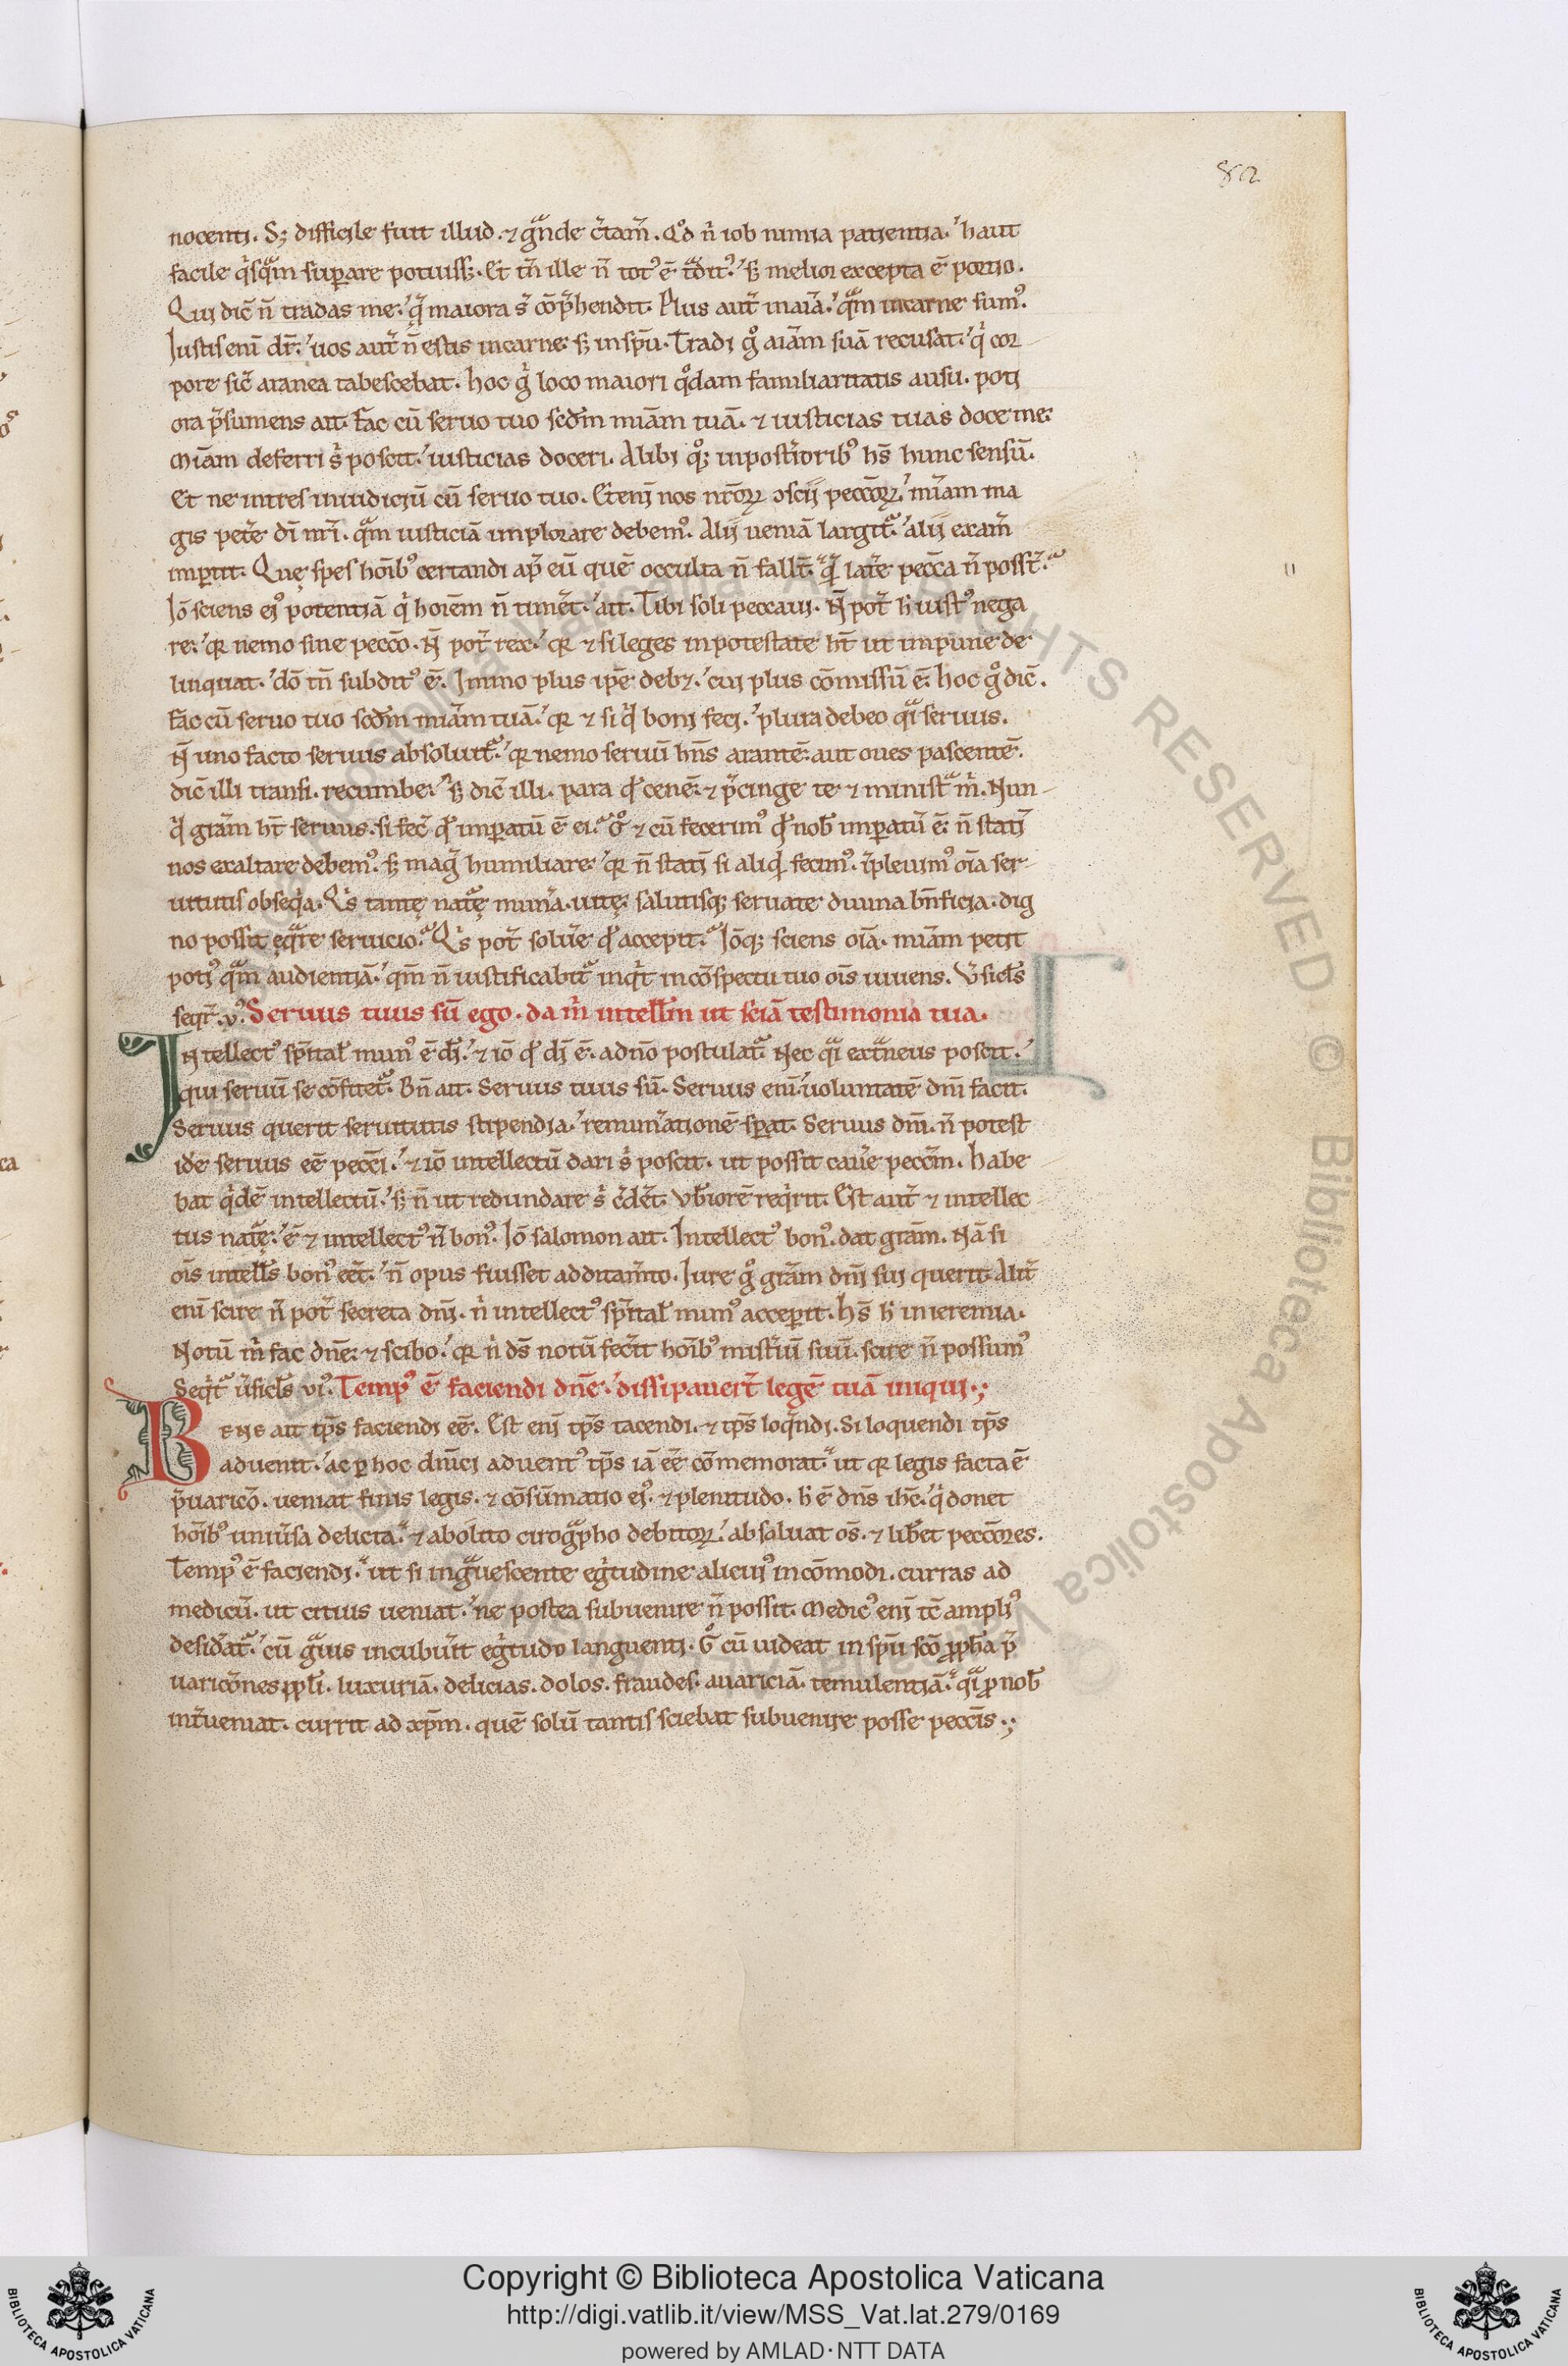 82
nocenti. Sꝫ difficile fuit illud. ⁊ gͣnde c̾tam̄. Qͦd n̄ iob nimia patientia.' haut
facile qͥsqͣm suꝑare potuissꝫ. Et tn̄ ille n̄ totꝰ ē tͣditꝰ.' sꝫ melior excepta ē portio.
Qui dic̄ n̄ tradas me.' qͥ maiora s̄ cōp̄hendit. Plus aut̄ in aīa.' qͣm in carne sumꝰ.
Iustis enī dr̄.' uos aut̄ n̄ estis in carne. sꝫ in sp̄u. Tradi gͦ aīam suā recusat.' qͥ cor
pore sic̄ aranea tabescebat. hoc gͥ loco maiori qͦdam familiaritatis ausu. poti
ora p̄sumens ait. fac cū seruo tuo scd̄m mīam tuā. ⁊ iusticias tuas doce me.
Mīam deferri sͥ poscit.' iusticias doceri. Alibi qͦꝫ in posterioribꝰ hꝫ hunc sensū.
Et ne intres in iudiciū cū seruo tuo. Etenī nos nr̄oꝝ ↄscii pecc̄oꝝ.' mīam ma
gis pet̄e dī nr̄i. qͣm iusticiā implorare debemꝰ. Alii ueniā largitͬ.' alii exam̄
imꝑtit. Quę spes hōibꝰ certandi ap̄ eū quē occulta n̄ fallt̄. qͥ lat̄e pecc̄a n̄ posst̄.
Iō sciens eiꝰ potentiā qͥ hoīem n̄ tim̄et.' ait. Tibi soli peccaui. N̄ pot̄ hͥ iustꝰ nega
re.' qꝛ nemo sine pecc̄o. N̄ pot̄ rex.' qꝛ ⁊ si leges in potestate ht̄ ut impune de
linquat.' dō tn̄ subditꝰ ē. Immo plus ip̄e debꝫ.' cui plus cōmissū ē. hoc gͦ dic̄.
fac cū seruo tuo scd̄m mīam tuā.' qꝛ ⁊ si qͥd boni feci.' plura debeo qͣi seruus.
N̄ uno facto seruus absoluitͬ.' qꝛ nemo seruū hn̄s arantē. aut oues pascentē.
dic̄ illi transi. recumbe.' sꝫ dic̄ illi. para qͦd cenē. ⁊ p̄cinge te ⁊ ministͣ m̄. Nun-
qͥd grām ht̄ seruus. si fec̄ qͦd imꝑatū ē ei. gͦ ⁊ cū fecerimꝰ qͦd nob̄ imꝑatū ē. n̄ statī
nos exaltare debemꝰ. sꝫ magͥ humiliare.' qꝛ n̄ statī si aliqͥd fecimꝰ. īpleuimꝰ oīa ser-
uitutis obseqͥa. Qͥs tantę natͬę mun̄a. uitę. salutisqꝫ seruate diuina bn̄ficia. dig
no possit ęqͣre seruicio. Qͥs pot̄ solu̾e qͦd accepit. Iōqꝫ sciens oīa. mīam petit
potiꝰ qͣm audientiā.' qm̄ n̄ iustificabitͬ inqͥt in cōspectu tuo oīs uiuens. V̾sicl̄s
seqͬ. vꝰ. Seruus tuus sū ego. da m̄ intellm̄ ut sciā testimonia tua.
INtellectꝰ sp̄ital̄ munꝰ ē dī.' ⁊ iō qͦd dī ē. a dn̄o postulatͬ. Nec qͣi extͣneus poscit.'
qui seruū se cōfitetͬ. Bn̄ ait. Seruus tuus sū. Seruus enī.' uoluntatē dn̄i facit.
Seruus querit seruitutis stipendia.' remun̄ationē sꝑat. Seruus dn̄i. n̄ potest
idē seruus eē pecc̄i.' ⁊ iō intellectū dari sͥ poscit. ut possit cau̾e pecc̄m. Habe
bat qͥdē intellectū.' sꝫ n̄ ut redundare sͥ c̾d̾et. Vb̾iorē reqͥrit. Est aut̄ ⁊ intellec
tus natͬę.' ē ⁊ intellectꝰ n̄ bonꝰ. Iō salomon ait. Intellectꝰ bonꝰ. dat grām. Nā si
oīs intell̄s bonꝰ eēt.' n̄ opus fuisset additam̄to. Iure gͦ grām dn̄i sui querit. Alit̄
enī scire n̄ pot̄ secreta dn̄i. nͥ intellectꝰ sp̄ital̄ munꝰ acceꝑit. Hꝫ hͥ in ieremia.
Notū m̄ fac dn̄e. ⁊ scibo.' qꝛ nͥ ds̄ notū fec̾it hōibꝰ mist̾iū suū. scire n̄ possumꝰ
Seqͥtͬ u̾sicl̄s viꝰ. Tempꝰ ē faciendi dn̄e.' dissipauert̄ legē tuā iniqui.;
BENE ait tp̄s faciendi eē. Est enī tp̄s tacendi. ⁊ tp̄s loqͥndi. Si loquendi tp̄s
aduenit.' ac ꝑ hoc dn̄ici aduentꝰ tp̄s iā eē cōmemorat. ut qꝛ legis facta ē
p̄uaricō. ueniat finis legis. ⁊ cōsūmatio eiꝰ. ⁊ plenitudo. hͥ ē dn̄s ihc̄.' qͥ donet
hōibꝰ uniu̾sa delicta. ⁊ abolito cirogͣpho debitoꝝ.' absoluat oꝫ. ⁊ lib̾et pecc̄ores.
Tempꝰ ē faciendi. ut si ingͣuescente egͥtudine alicuiꝰ incōmodi. curras ad
medicū. ut citius ueniat.' ne postea subuenire n̄ possit. Medicꝰ enī tc̄ ampliꝰ
desid̾atͬ.' cū gͣuis incubu̾it egͥtudo languenti. Gͦ cū uideat in sp̄u sc̄o ꝓph̄a p̄
uaricōnes ppl̄i. luxuriā. delicias. dolos. fraudes. auariciā. temulentiā. qͣi ꝓ nob̄
int̄ueniat. currit ad xp̄m. quē solū tantis sciebat subuenire posse pecc̄is.;
© Biblioteca Apostolica Vaticana ALL RIGHTS RESERVED
Copyright © Biblioteca Apostolica Vaticana
http://digi.vatlib.it/view/MSS_Vat.lat.279/0169
powered by AMLAD·NTT DATA
BIBLIOTECA APOSTOLICA VATICANA
BIBLIOTECA APOSTOLICA VATICANA